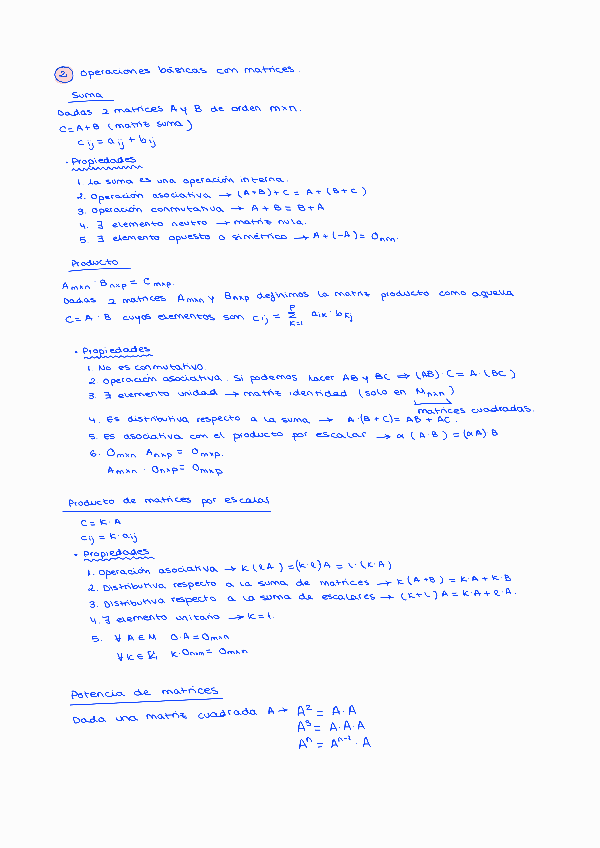 2. Operaciones básicas con matrices.
Suma
Dadas 2 matrices A y B de orden m×n.
C = A+B (matriz suma)
c_ij = a_ij + b_ij
· Propiedades
1. La suma es una operación interna.
2. Operación asociativa → (A+B)+C = A+(B+C)
3. Operación conmutativa → A+B = B+A
4. ∃ elemento neutro → matriz nula.
5. ∃ elemento opuesto o simétrico → A+(-A) = O_nm.
Producto
A_m×n · B_n×p = C_m×p.
Dadas 2 matrices A_m×n y B_n×p definimos la matriz producto como aquella
C = A · B cuyos elementos son c_ij = Σ_{k=1}^{p} a_ik · b_kj
· Propiedades
1. No es conmutativo.
2. Operación asociativa. Si podemos hacer AB y BC ⇒ (AB)·C = A·(BC)
3. ∃ elemento unidad → matriz identidad (solo en M_n×n)
matrices cuadradas.
4. Es distributiva respecto a la suma → A·(B+C) = AB + AC.
5. Es asociativa con el producto por escalar → α(A·B) = (αA)B
6. O_m×n A_n×p = O_m×p.
A_m×n · O_n×p = O_m×p
Producto de matrices por escalar
C = K·A
c_ij = K·a_ij
· Propiedades
1. Operación asociativa → K(lA) = (K·l)A = l·(K·A)
2. Distributiva respecto a la suma de matrices → K(A+B) = K·A + K·B
3. Distributiva respecto a la suma de escalares → (K+l)A = K·A + l·A.
4. ∃ elemento unitario → K=1.
5. ∀ A ∈ M 0·A = O_m×n
∀ K ∈ K, K·O_n×m = O_m×n
Potencia de matrices
Dada una matriz cuadrada A → A² = A·A
A³ = A·A·A
Aⁿ = Aⁿ⁻¹·A